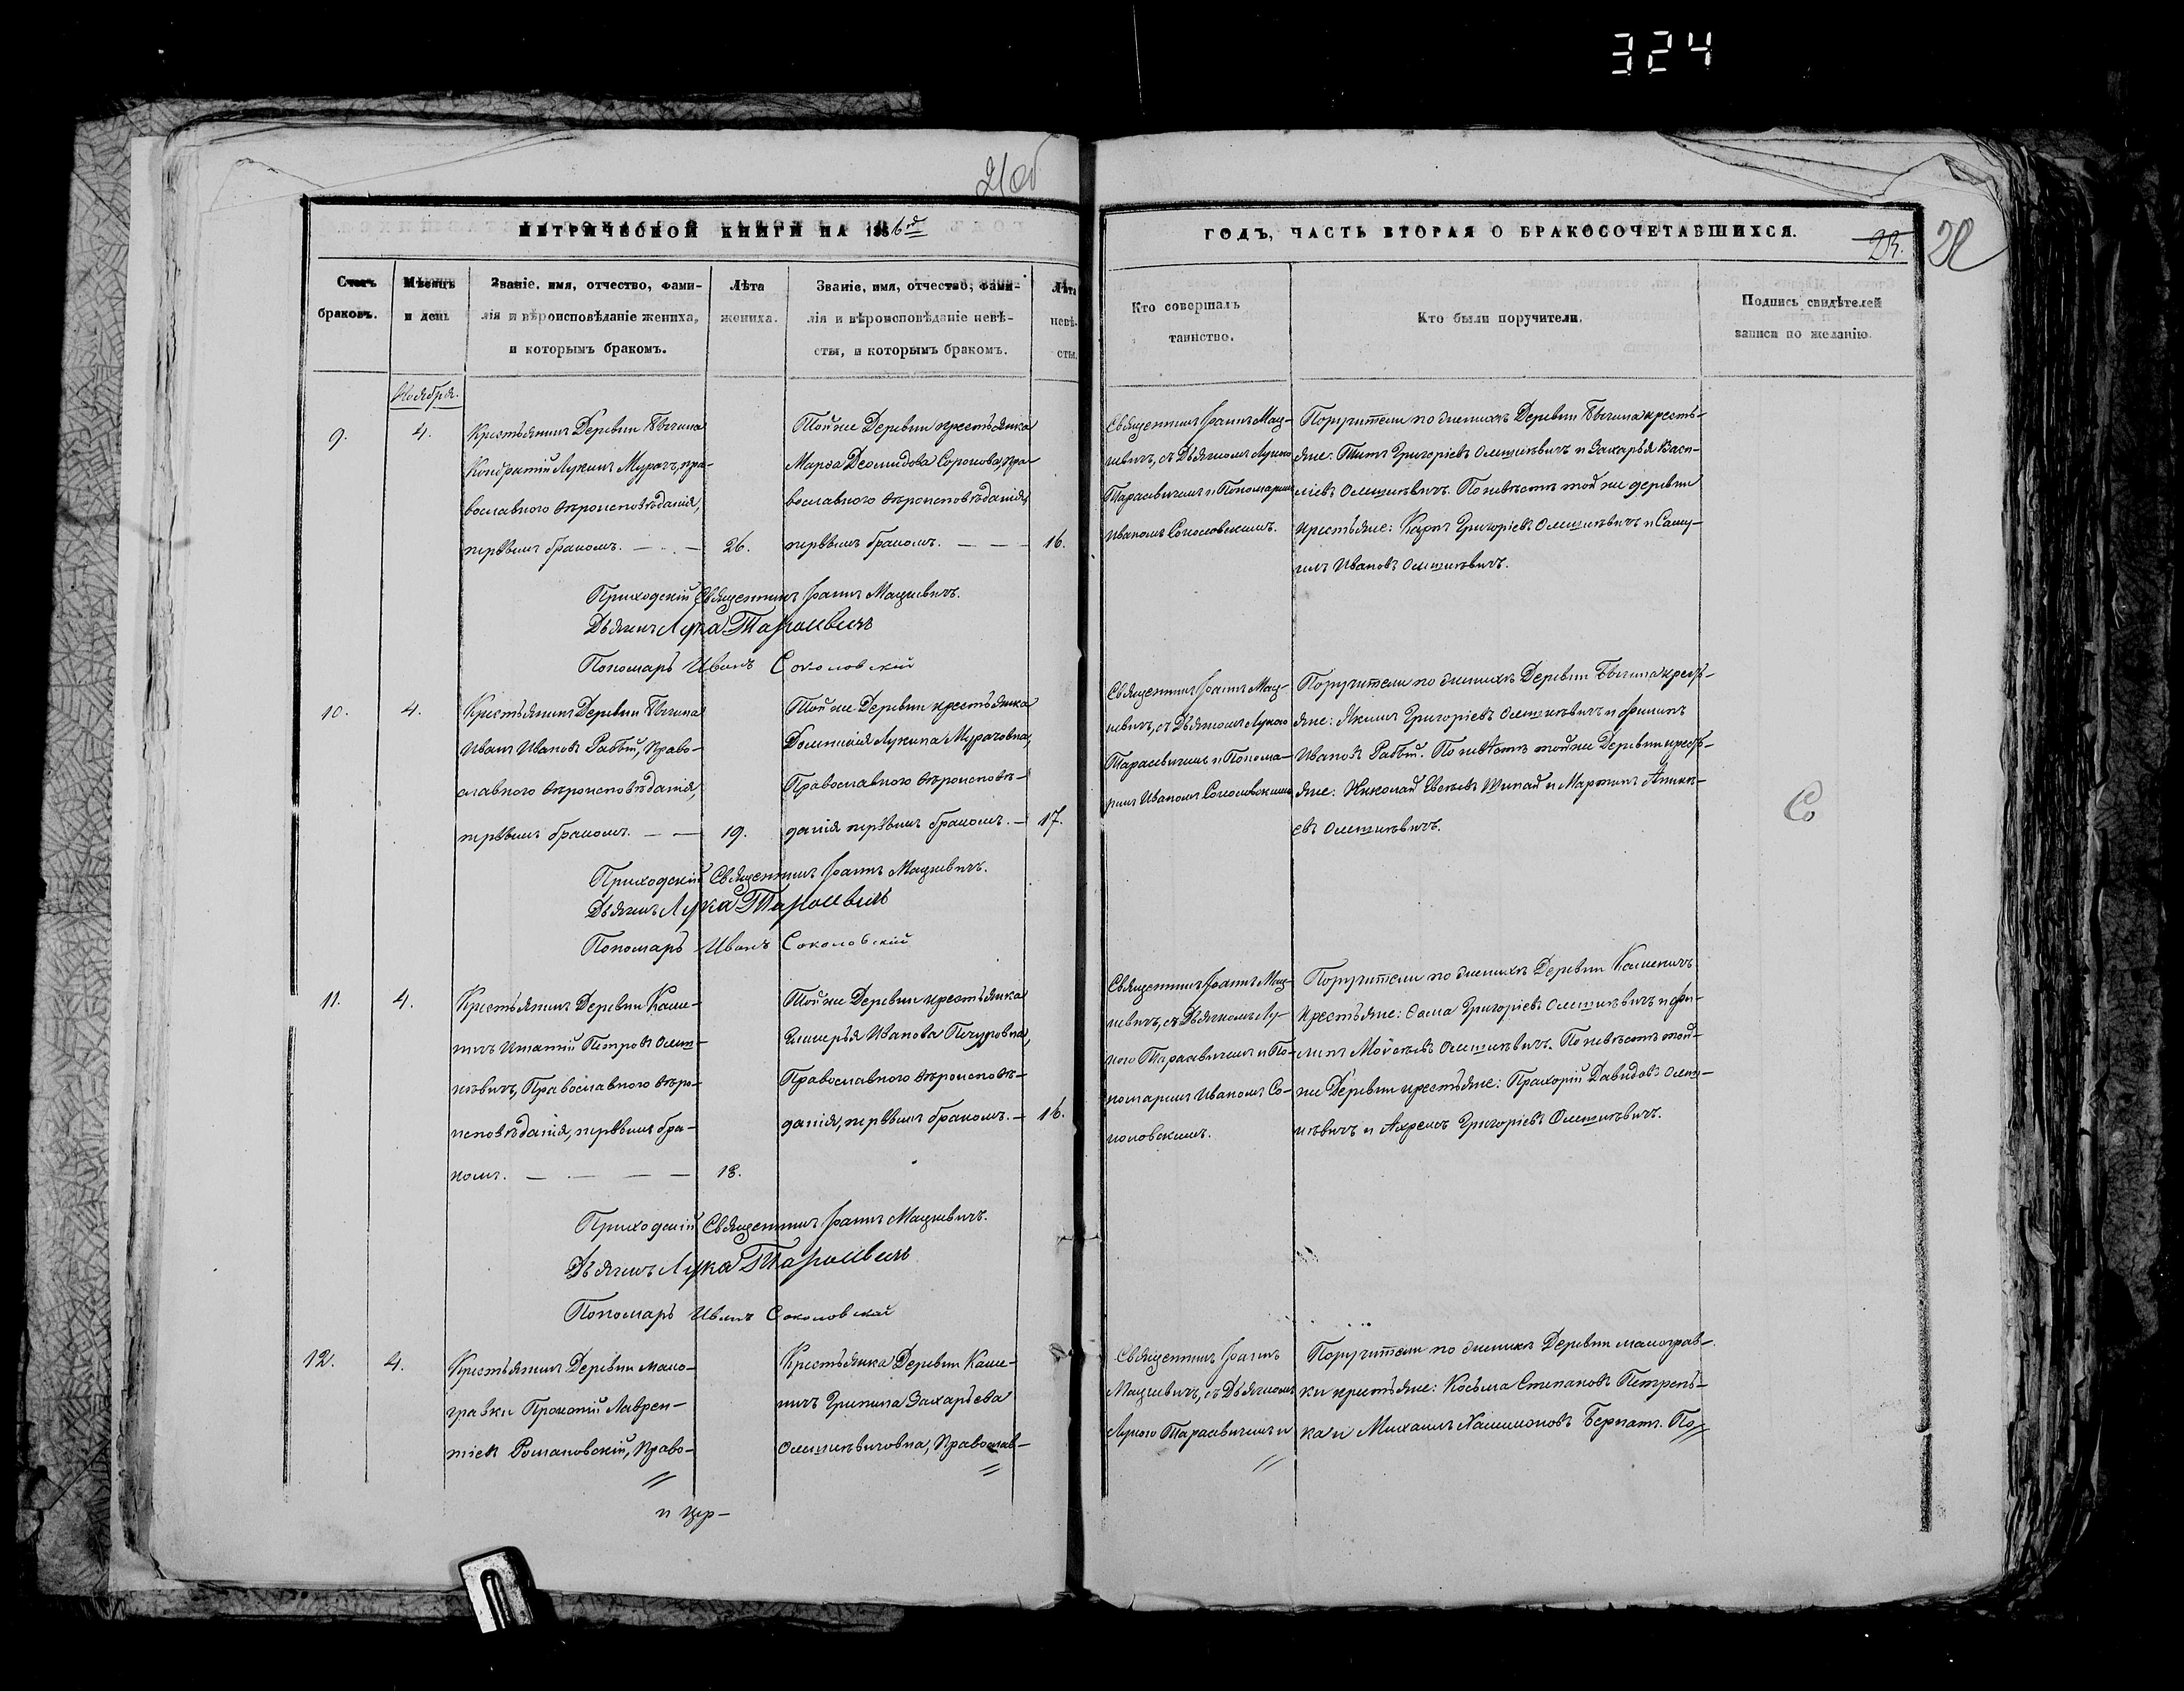 324
МЕТРИЧЕСКОЙ КНИГИ НА 1856й
ГОДЪ, ЧАСТЬ ВТОРАЯ О БРАКОСОЧЕТАВШИХСЯ.
Счетъ браковъ.
Мѣсяцъ и день
Званіе, имя, отчество, фами-
лія и вѣроисповѣданіе жениха,
и которымъ бракомъ.
Лѣта
жениха.
Званіе, имя, отчество, фами-
лія и вѣроисповѣданіе невѣ-
сты, и которымъ бракомъ.
Лѣта
невѣ-
сты.
Кто совершалъ
таинство.
Кто были поручители.
Подпись свидѣтелей
записи по желанію.
Ноября.
9.
4.
Крестьянинъ Деревни
Кондратій Лукинъ Мурачъ, пра-
вославного вѣроисповѣданія,
первымъ бракомъ.
26.
Той же Деревни крестьянка
Марѳа Деомидова Сорокова, пра-
вославного вѣроисповѣданія
первымъ бракомъ.
16.
Священникъ Іоаннъ Мац-
кевичъ, съ Дьячкомъ Лукою
Тарасевичемъ и Пономаремъ
Иваномъ Соколовскимъ.
Поручители по женихѣ Деревни крестья-
яне: Титъ Григоріевъ Олешкевичъ и Захарья Васи-
ліевъ Олешкевичъ. По невѣстѣ той же деревни
крестьяне: Карпъ Григоріевъ Олешкевичъ и Саму-
илъ Ивановъ Олешкевичъ.
Приходскій Священникъ Іоаннъ Мацкевичъ.
Дьячекъ Лука Тарасевичъ
Пономарь Иванъ Соколовскій
10.
4.
Крестьянинъ Деревни
Иванъ Ивановъ Рабый, Право-
славного вѣроисповѣданія,
первымъ бракомъ.
19.
Той же Деревни крестьянка
Доминикія Лукина Мурачовна,
Православного вѣроисповѣ-
данія первымъ бракомъ.
17.
Священникъ Іоаннъ Мац-
кевичъ, съ Дьячкомъ Лукою
Тарасевичемъ и Понома-
ремъ Иваномъ Соколовскимъ
Поручители по женихѣ Деревни крест-
яне: Якимъ Григоріевъ Олешкевичъ и Филипъ
Ивановъ Рабый. По невѣстѣ той же Деревни крест-
яне: Николай Евсѣевъ и Мартинъ Аникѣ-
евъ Олешкевичъ.
Приходскій Священникъ Іоаннъ Мацкевичъ.
Дьячекъ Лука Тарасевичъ
Пономарь Иванъ Соколовскій
11.
4.
Крестьянинъ Деревни Каме-
ничъ Игнатій Петровъ Олеш-
кѣвичъ, Православного вѣро-
исповѣданія, первымъ бра-
комъ.
18.
Той же Деревни крестьянка
Гликерья Иванова Печуровна,
Православного вѣроисповѣ-
данія, первымъ бракомъ.
16.
Священникъ Іоаннъ Мац-
кевичъ, съ Дьячкомъ Лу-
кою Тарасевичемъ и По-
номаремъ Иваномъ Со-
коловскимъ.
Поручители по женихѣ Деревни Каменичъ
Крестьяне: Сава Григоріевъ Олешкевичъ и Фи-
липъ Мойсѣевъ Олешкевичъ. По невѣстѣ той-
же Деревни крестьяне: Прахорій Давидовъ Олеш-
кѣвичъ и Ахремъ Григоріевъ Олешкевичъ.
Приходскій Священникъ Іоаннъ Мацкевичъ.
Дьячекъ Лука Тарасевичъ
Пономарь Иванъ Соколовскій
12.
4.
Крестьянинъ Деревни мало-
гравки Прокопій Лаврен-
тіевъ Романовскій, Право-
Крестьянка Деревни Каме-
ничъ Грипина Захарьева
Олешкевичовна, Православ-
Священникъ Іоаннъ
Мацкевичъ, съ Дьячкомъ
Лукою Тарасевичемъ и
Поручители по женихѣ Деревни малограв-
ки крестьяне: Косьма Степановъ Петрень-
ка и Михаилъ Бернатъ. По